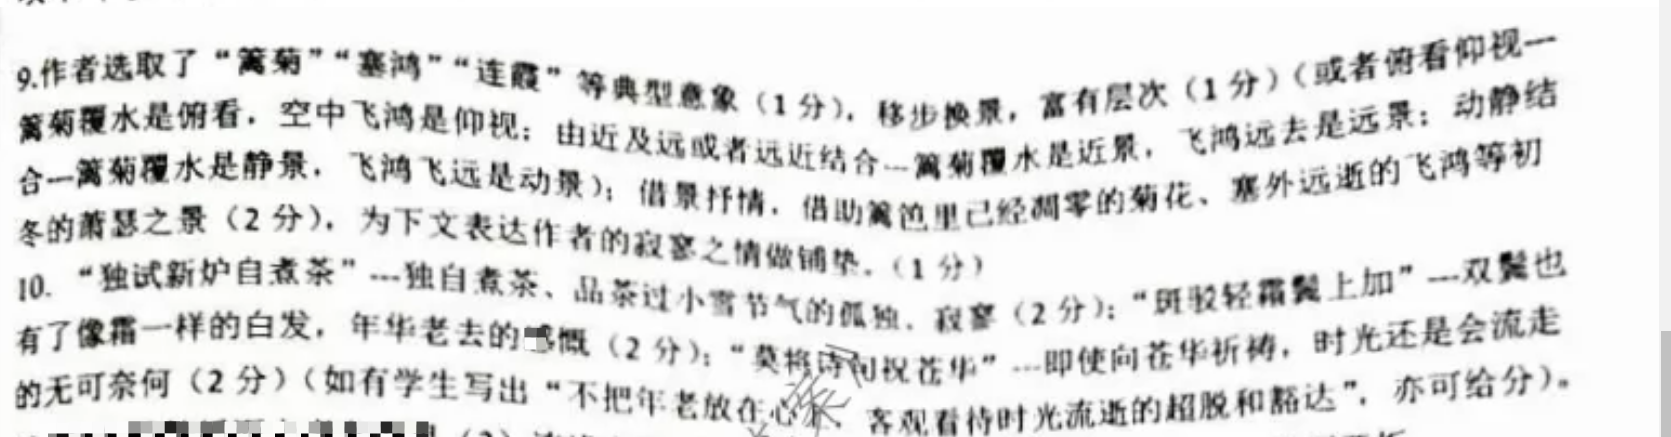 9.作者选取了“篱菊”“塞鸿”“连霞”等典型意象（1分），移步换景，富有层次（1分）（或者俯看仰视一
篱菊覆水是俯看，空中飞鸿是仰视；由近及远或者远近结合---篱菊覆水是近景，飞鸿远去是远景；动静结
合—篱菊覆水是静景，飞鸿飞远是动景）；借景抒情，借助篱笆里已经凋零的菊花、塞外远逝的飞鸿等初
冬的萧瑟之景（2分），为下文表达作者的寂寥之情做铺垫。（1分）
10. “独试新炉自煮茶”---独自煮茶、品茶过小雪节气的孤独、寂寥（2分）；“斑驳轻霜鬓上加”---双鬓也
有了像霜一样的白发，年华老去的感慨（2分）；“莫将诗句祝苍华”---即使向苍华祈祷，时光还是会流走
的无可奈何（2分）（如有学生写出“不把年老放在心 客观看待时光流逝的超脱和豁达”，亦可给分）。